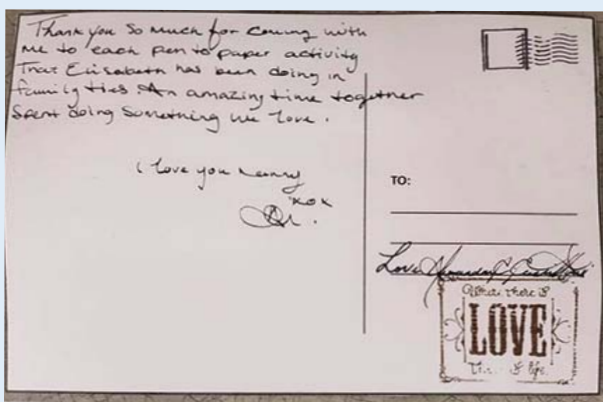 Thank you so much for coming with
me to each pen to paper activity
That Elisabeth has been doing in
family ties An amazing time together
Spent doing something we love.
I love you
xox
TO:
Love
Where there is
LOVE
life.